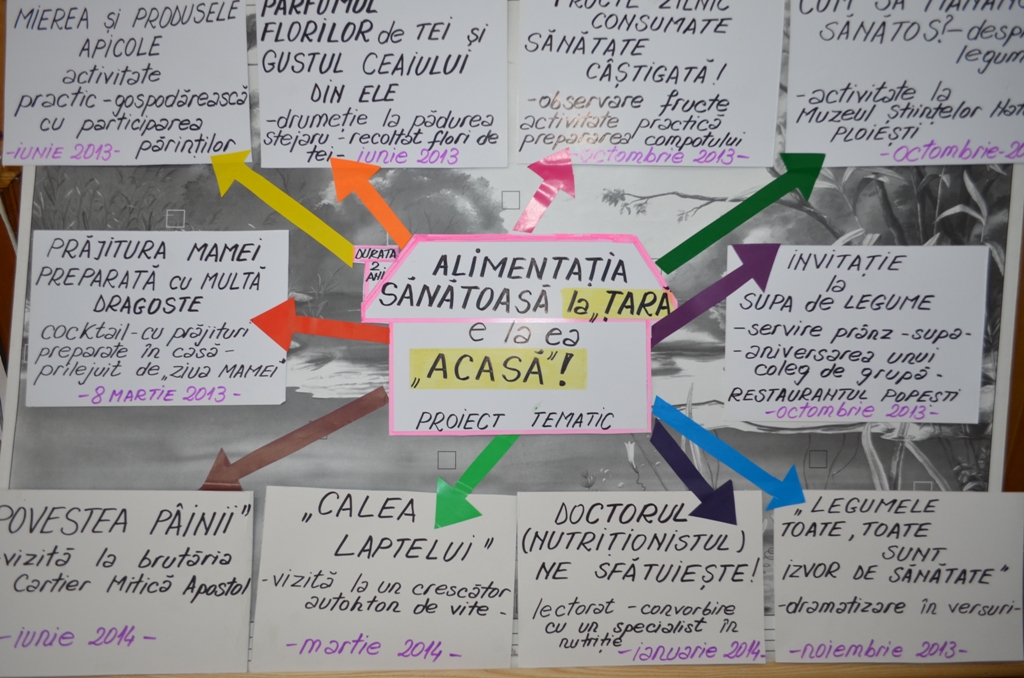 MIEREA și PRODUSELE
APICOLE
activitate
practic-gospodărească
cu participarea
părinților
-iunie 2013-
PARFUMUL
FLORILOR de TEI și
GUSTUL CEAIULUI
DIN ELE
-drumeție la pădurea
stejaru-recoltat flori de
tei- iunie 2013
FRUCTE ZILNIC
CONSUMATE
SĂNĂTATE
CÂȘTIGATĂ!
-observare fructe
activitate practică
prepararea compotului
-octombrie 2013-
CUM SĂ
SĂNĂTOS!-
-activitate la
Muzeul Științelor
PLOIEȘTI
-octombrie-
PRĂJITURA MAMEI
PREPARATĂ cu MULTĂ
DRAGOSTE
cocktail-cu prăjituri
preparate în casă-
prilejuit de „ZIUA MAMEI
-8 MARTIE 2013-
DURATA
2
ANI
ALIMENTAȚIA
SĂNĂTOASĂ la „ȚARĂ
e la ea
„ACASĂ”!
PROIECT TEMATIC
INVITAȚIE
la
SUPA de LEGUME
-servire prânz-supa-
-aniversarea unui
coleg de grupă-
RESTAURANTUL POPEȘTI
-octombrie 2013-
POVESTEA PÂINII”
-vizită la brutăria
Cartier Mitică Apostol
-iunie 2014-
„CALEA
LAPTELUI”
-vizită la un crescător
autohton de vite-
-martie 2014-
DOCTORUL
(NUTRIȚIONISTUL)
NE SFĂTUIEȘTE!
lectorat-convorbire
cu un specialist în
nutriție
-ianuarie 2014-
„LEGUMELE
TOATE, TOATE
SUNT
IZVOR DE SĂNĂTATE”
-dramatizare în versuri-
-noiembrie 2013-